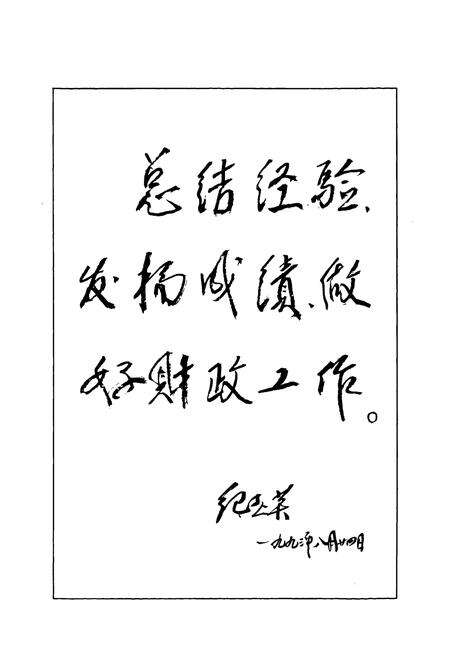 总结经验、
发扬成绩、做
好财政工作。
纪玉英
一九九三年八月廿四日